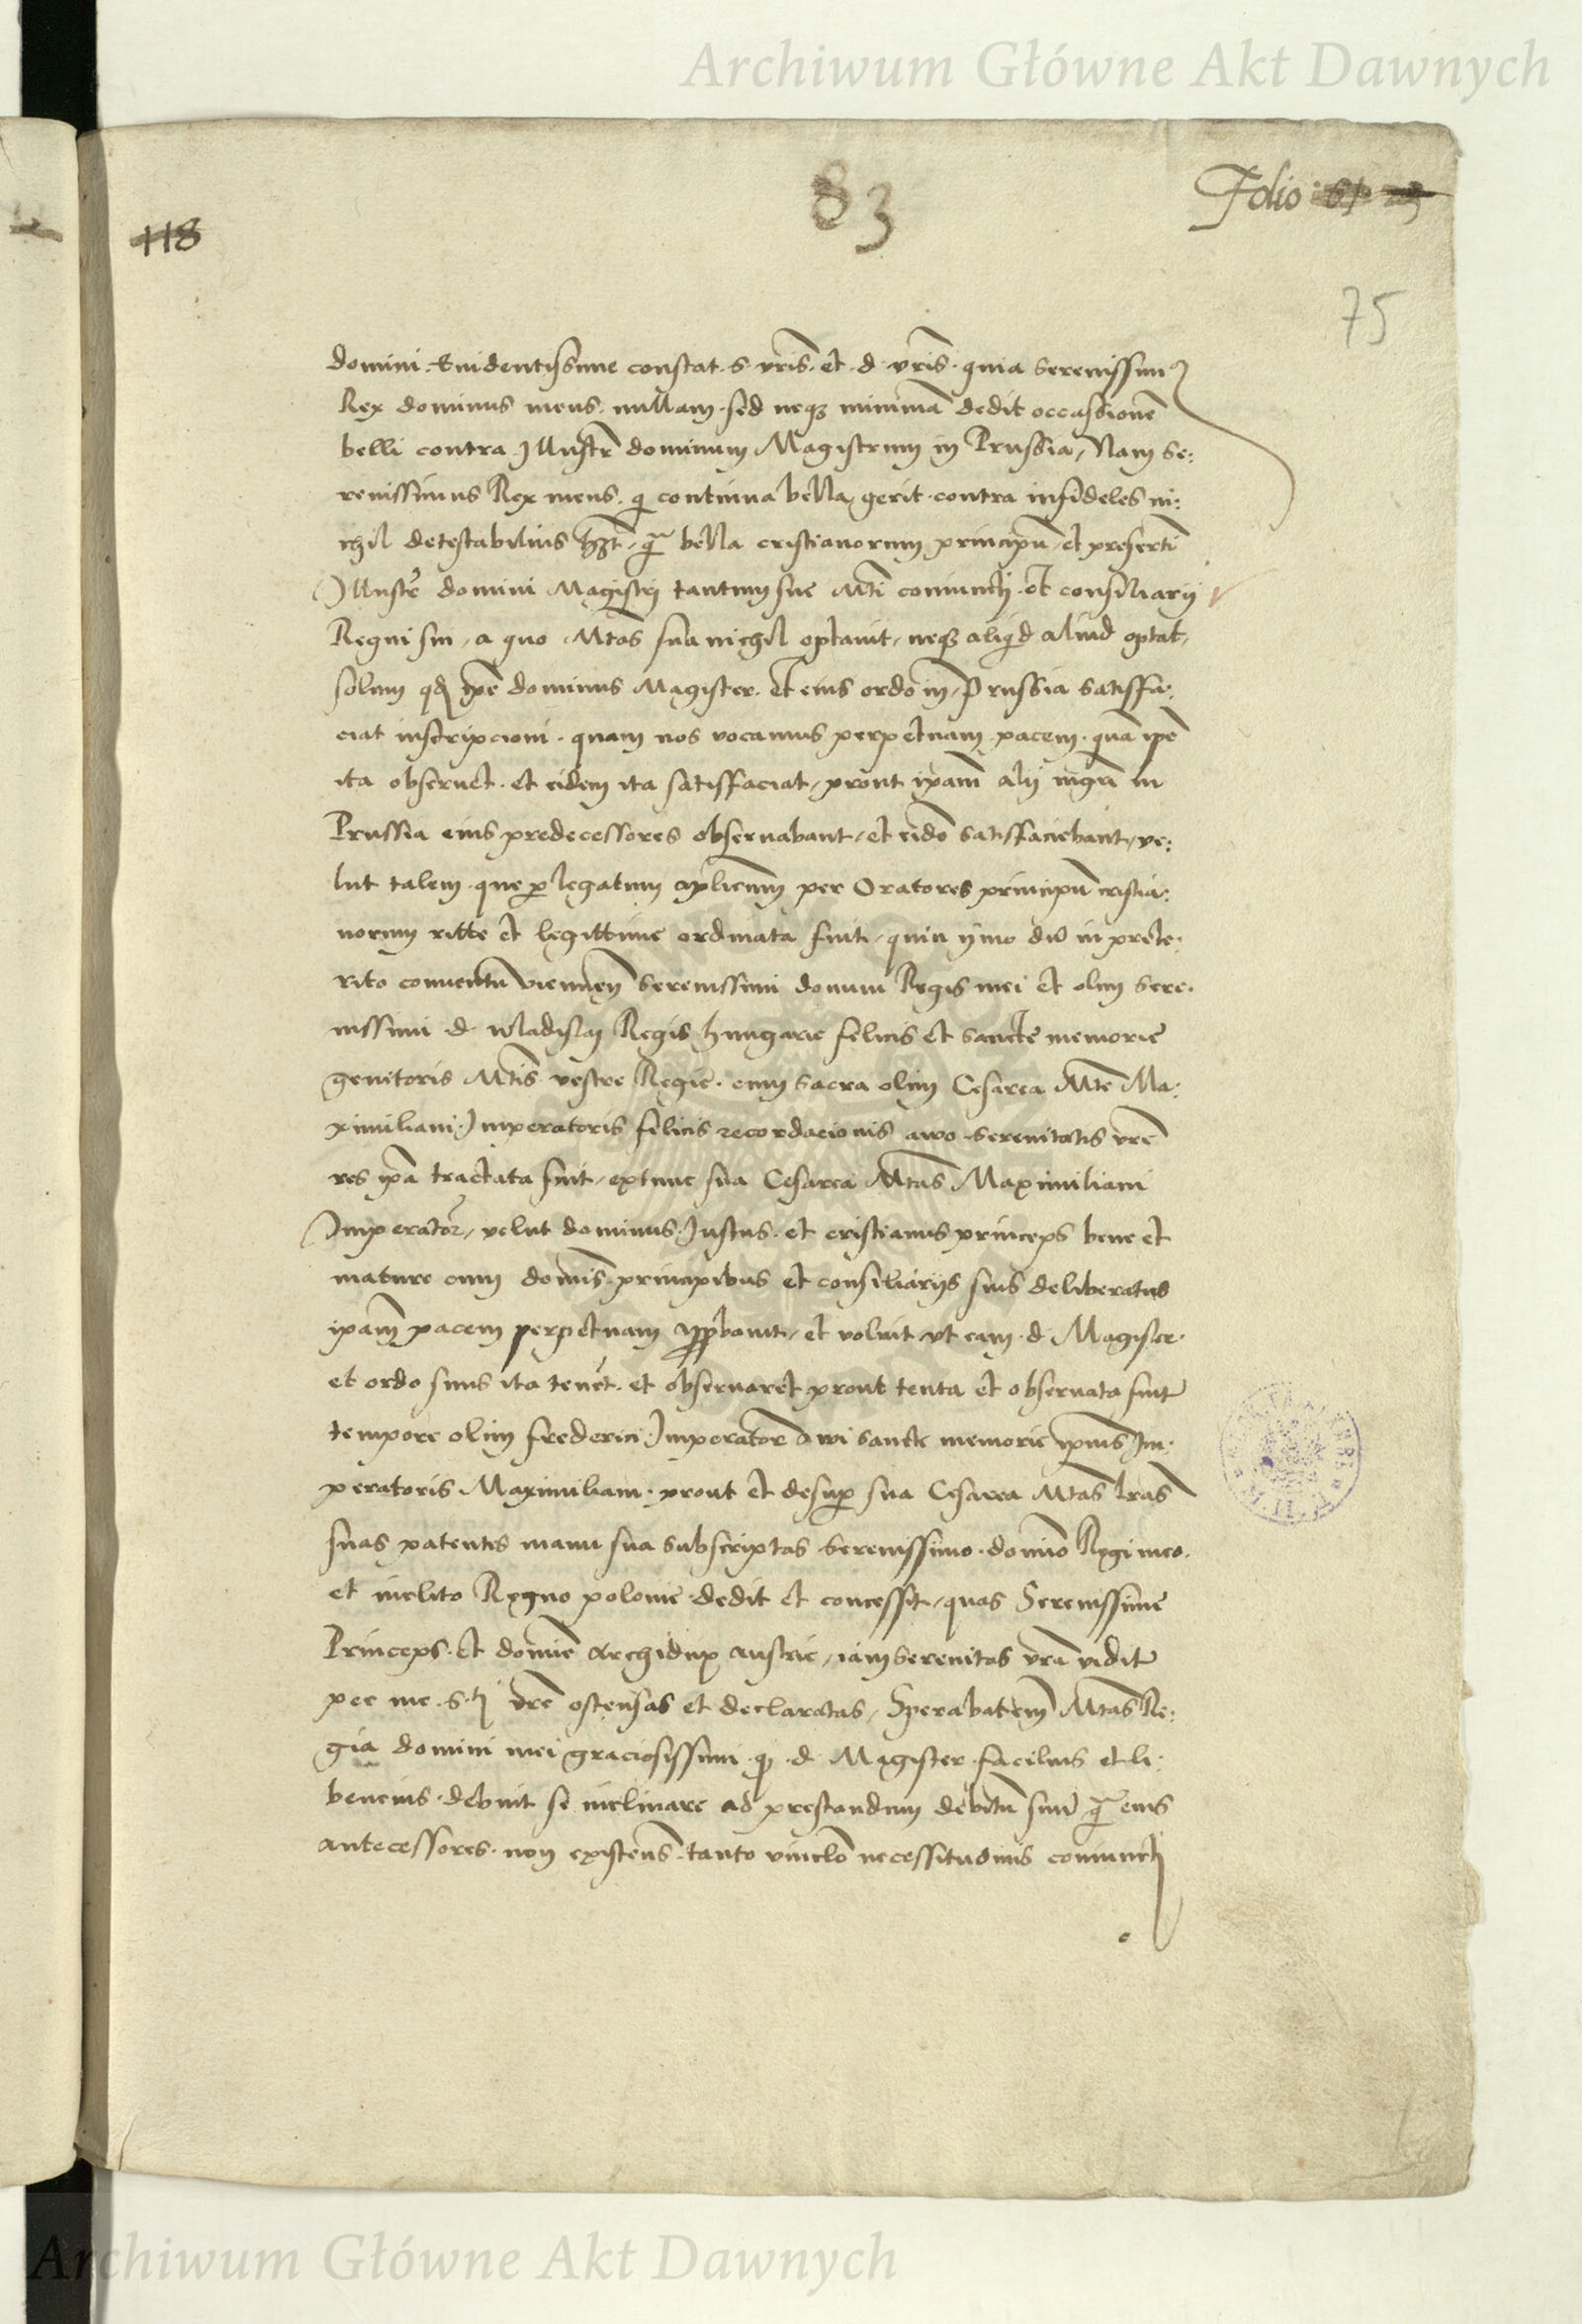 Archiwum Główne Akt Dawnych
118
83
Folio
75
domini Euidentissime constat s. vris et d. vris quia serenissim9
Rex dominus meus nullam sed neq3 minimā dedit occassionē
belli contra Illustrē dominum Magistrum in Prussia, Nam se:
renissimus Rex meus qi continua bella gerit contra infideles ni:
chil detestabilius h3t, q̄ bella cristianorum principū et presertī
Illustr̄ domini Magistrj tantum sue Mti coniunctj et consiliarij
Regni sui, a quo Mtas sua nichil optauit, neq3 aliqd aliud optat,
solum qd ipē dominus Magister et eius ordo in Prussia satisfa:
ciat inscripcioni quam nos vocamus perpetuam pacem quā ipē
ita obseruet et eidem ita satisfaciat, prout ipam alij mgrī in
Prussia eius predecessores obseruabant, et eidē satisfaciebant, ve:
lut talem que p legatum aplicum per Oratores principū cristia:
norum ritte et legittime ordinata fuit, quin ijmo dū in prete:
rito conuentu vienneñ serenissimi domini Regis mei et olim sere:
nissimi d. wladislaj Regis hungarie felicis et sancte memorie
genitoris Mtis vestre Regie cum sacra olim Cesarea Mte Ma:
ximiliani Imperatoris felicis recordacionis awo serenitatis vrē
res ipā tractata fuit, extunc sua Cesarea Mtas Maximiliani
Imperator, velut dominus Justus et cristianus princeps bene et
mature cum domīs principibus et consiliarijs suis deliberatus
ipam pacem perpetuam approbauit, et voluit vt eam d. Magister
et ordo suus ita teneret et obseruaret prout tenta et obseruata fuit
tempore olim frederici Imperator awi sancte memorie ipius Im:
peratoris Maximiliani prout et desup sua Cesarea Mtas lras
suas patentes manu sua subscriptas serenissimo domīo Regi meo
et inclito Regno polonie dedit et concessit, quas Serenissime
Princeps et domīe Archidux austrie, iam serenitas vrā vidit
per me s.ti vrē ostensas et declaratas, Sperabat em̄ Mtas Re:
gia domini mei graciosissimi q d. Magister facilius et li:
bencius debuit se inclinare ad prestandum debitū suū q̄ eius
antecessores non existens tanto vinclo necessitudinis coniunctj
Archiwum Główne Akt Dawnych